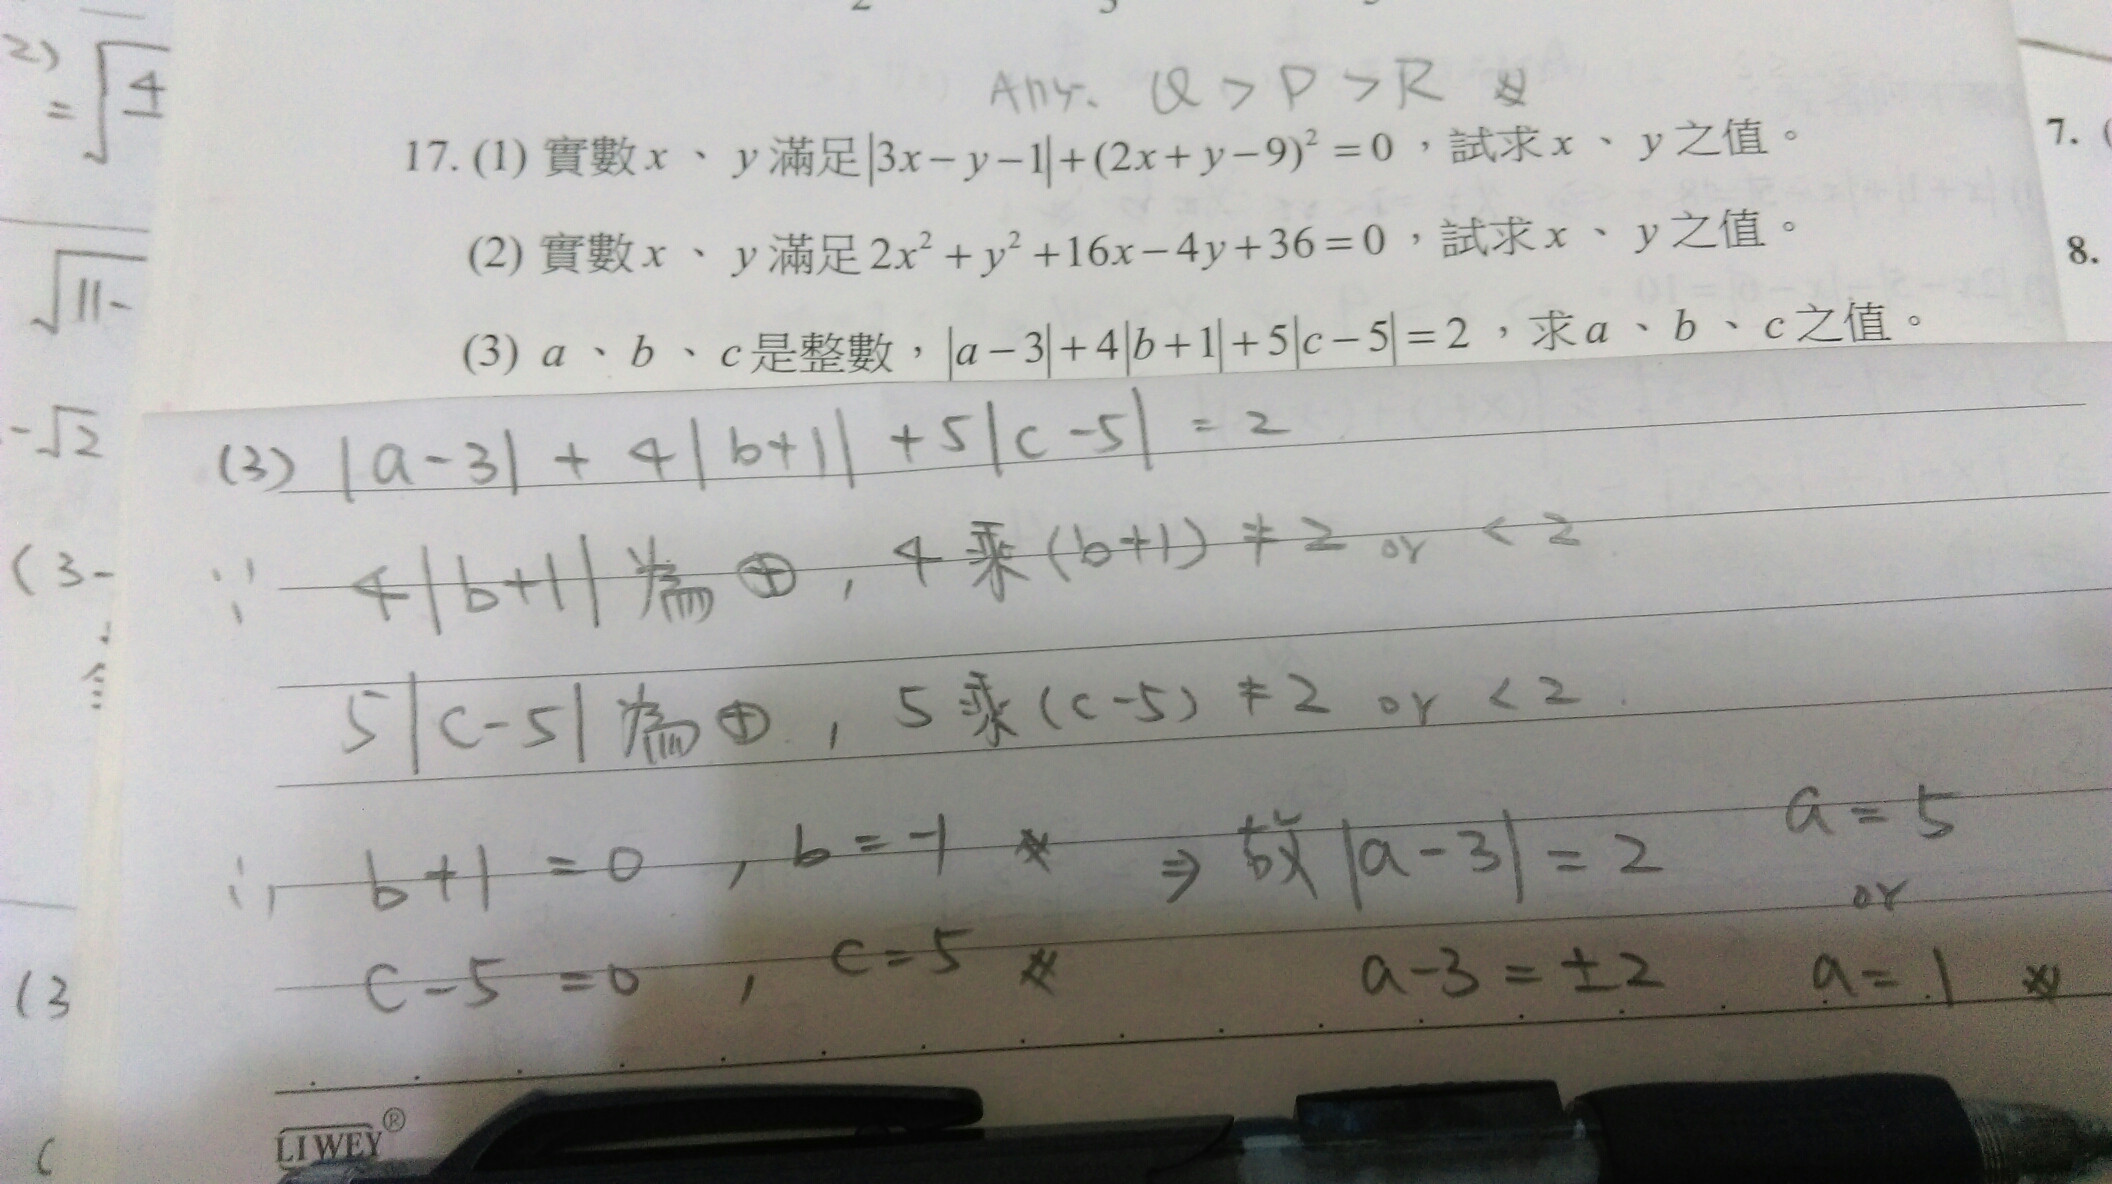 Ans. Q > P > R
17. (1) 實數 x 、 y 滿足 |3x－y－1|＋(2x＋y－9)² ＝0 ，試求 x 、 y 之值。
(2) 實數 x 、 y 滿足 2x² ＋ y² ＋16x－4y＋36＝0 ，試求 x 、 y 之值。
(3) a 、 b 、 c 是整數， |a－3|＋4|b＋1|＋5|c－5|＝2 ，求 a 、 b 、 c 之值。
7.
8.
2)
= √4
√11-
-√2
(3-
(3
(3) |a-3| + 4|b+1| + 5|c-5| = 2
∵ 4|b+1| 為 ⊕ , 4 乘 (b+1) ≠ 2 or < 2
5|c-5| 為 ⊕ , 5 乘 (c-5) ≠ 2 or < 2
∴ b+1 = 0 , b = -1 ⇒ 故 |a-3| = 2 a = 5
or
c-5 = 0 , c = 5 a-3 = ±2 a = 1
LIWEY®